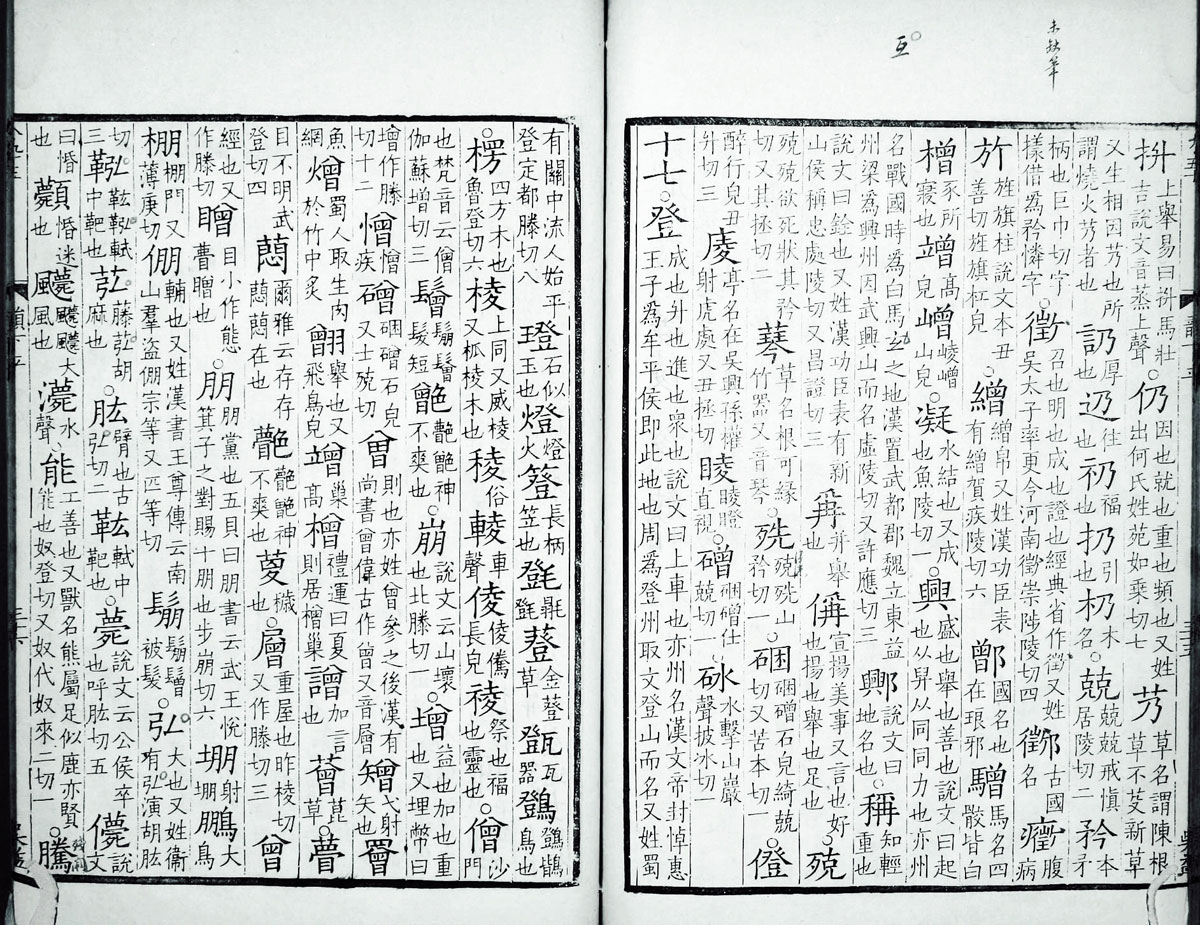 抍上舉易曰抍馬壯吉說文音蒸上聲○仍因也就也重也頻也又姓出何氏姓苑如乘切七芿草名謂陳根草不芟新草
又生相因芿也所謂燒火芿者也訒厚也辸往也礽福也扔引也杋木名○兢兢兢戒慎居陵切二矜本矛
柄也巨巾切字樣借爲矜憐字○徵召也明也成也證也經典省作徵又姓吳太子率更令河南徵崇陟陵切四古國名癥腹病
㫃旌旗柱說文本丑善切旌旗杠皃繒繒帛又姓漢功臣表有繒賀疾陵切六鄫國名也在琅邪驓馬名四骹皆白
橧豕所寢也竲高皃嶒崚嶒山皃○凝水結也又成也魚陵切一○興盛也舉也善也說文曰起也从舁从同同力也亦州
名戰國時爲白馬氐之地漢置武都郡魏立東益州梁爲興州因武興山而名虛陵切又許應切三說文曰地名也○稱知輕重也
說文曰銓也又姓漢功臣表有新山侯稱忠處陵切又昌證切三爯并舉也偁宣揚美事又言也好也揚也舉也足也○殑
殑殑欲死狀其矜切又其拯切二草名根可緣竹器又音琴○殑山矜切一○硱硱磳石皃綺兢切又苦本切一○僜
醉行皃丑升切三庱亭名在吳興孫權射虎處又丑拯切䁁䁁瞪直視○磳硱磳仕兢切一○砅水擊山巖聲披冰切一
十七○登成也升也進也衆也說文曰上車也亦州名漢文帝封悼惠王子爲牟平侯即此地也周爲登州取文登山而名又姓蜀
有關中流人始平登定都滕切八璒石似玉也燈燈火簦長柄笠也㲪䔲金䔲草瓦器鷑鷑鵖鳥也
○楞四方木也魯登切六棱上同又威棱又柧棱木也稜俗輘車聲倰倰儯長皃祾祭也福也靈也○僧沙門
也梵音云僧伽蘇增切三鬙鬅鬙髮短神不爽也○崩說文云山壞也北滕切一○增益也加也重也又埋幣曰
增作滕切十二憎憎疾磳硱磳石皃又士兢切曾則也亦姓曾參之後漢有尚書曾偉古作曾又音層矰弋射矢也罾
魚網熷蜀人取生肉於竹中炙䎖舉也又曾飛鳥皃竲巢高橧禮運曰夏則居橧巢譄加言也草○瞢
目不明武登切四爾雅云存存在也神不爽也○層重屋也昨棱切又作滕切三曾
經也又作滕切目小作態瞢也○朋朋黨也五貝曰朋書云武王悅箕子之對賜十朋也步崩切六堋射堋鵬大鳥
棚棚門又薄庚切倗輔也又姓漢書王尊傳云南山羣盜倗宗等又匹等切鬅鬅鬙被髮○弘大也又姓衞有弘演胡肱
切三鞃軾中靶也苰藤苰胡麻也○肱臂也古弘切二軾中靶也○薨說文云公侯卒也呼肱切五儚說文
曰惽也顭惽迷也大風也水聲○能工善也又獸名熊屬足似鹿亦賢能也奴登切又奴代奴來二切一○騰
互
未缺筆